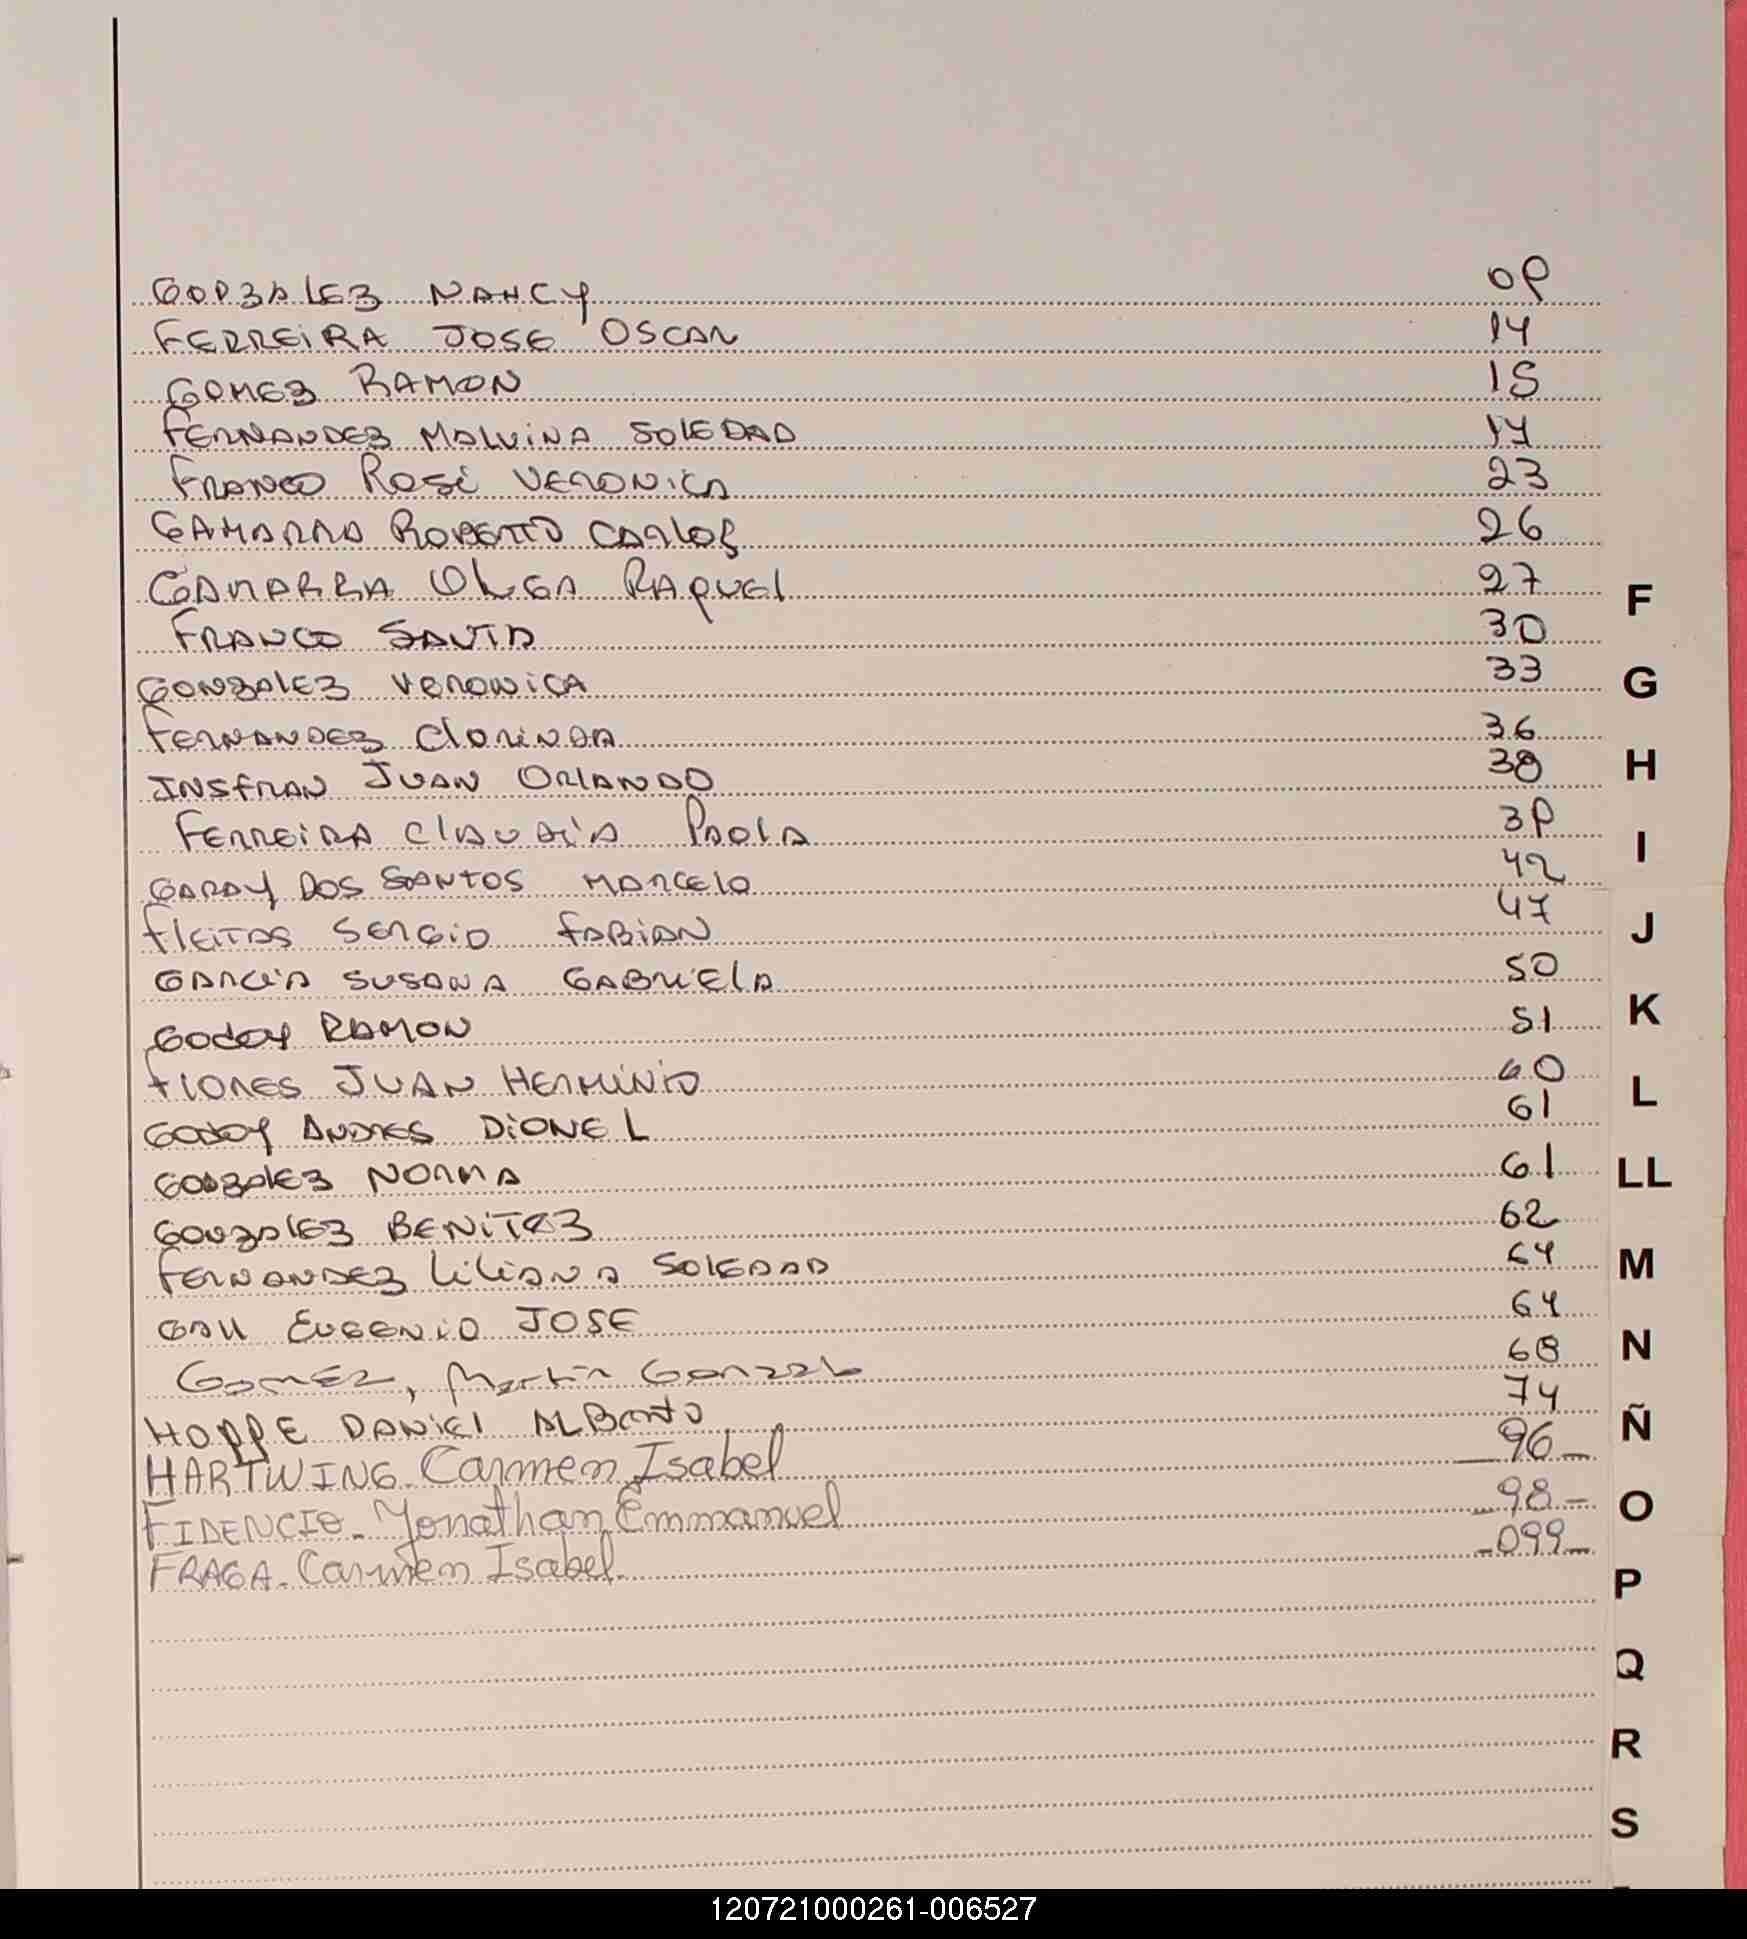 GONZALEZ NANCY 09
FERREIRA JOSE OSCAR 14
GOMEZ RAMON 15
FERNANDEZ MALVINA SOLEDAD 17
FRANCO ROSE VERONICA 23
GAMARRA ROBERTO CARLOS 26
GAMARRA OLGA RAQUEL 27
FRANCO 30
GONZALEZ VERONICA 33
FERNANDEZ CLORINDA 36
INSFRAN JUAN ORLANDO 38
FERREIRA CLAUDIA PAOLA 39
GARAY DOS SANTOS MARCELO 42
FLEITAS SERGIO FABIAN 47
GARCIA SUSANA GABRIELA 50
GODOY RAMON 51
FLORES JUAN HERMINIO 60
GODOY ANDRES DIONEL 61
GONZALEZ NORMA 61
GONZALEZ BENITEZ 62
FERNANDEZ LILIANA SOLEDAD 64
GALL EUGENIO JOSE 64
GOMEZ, Martin Gonzalo 68
HOPPE DANIEL ALBERTO 74
HARTWING. Carmen Isabel 96-
FIDENCIO. Yonathan Emmanuel 98-
FRAGA. Carmen Isabel. 099
F
G
H
I
J
K
L
LL
M
N
Ñ
O
P
Q
R
S
120721000261-006527